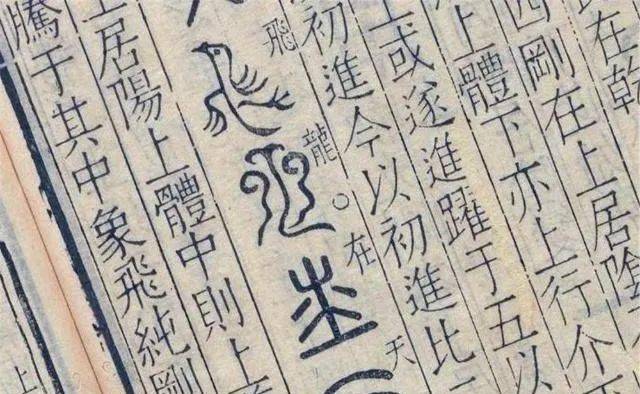 在乾
四剛在上居陰
上體下亦上行介
上或遂進躍于五以
初進今以初進比
飛龍在天
上居陽上體中則上
騰于其中象飛純剛
上